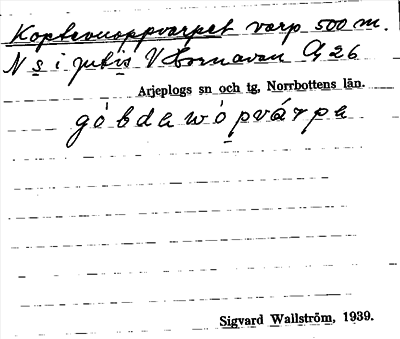 Koptevuoppvarpet varp 500 m.
N s i Jutis V Hornavan A 26
Arjeplogs sn och tg, Norrbottens län.
gȯbdawȯpvárpa
Sigvard Wallström, 1939.